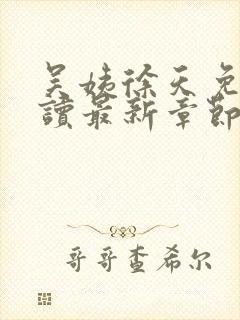 吴姨徐天免
讀最新章節
哥哥查希尔